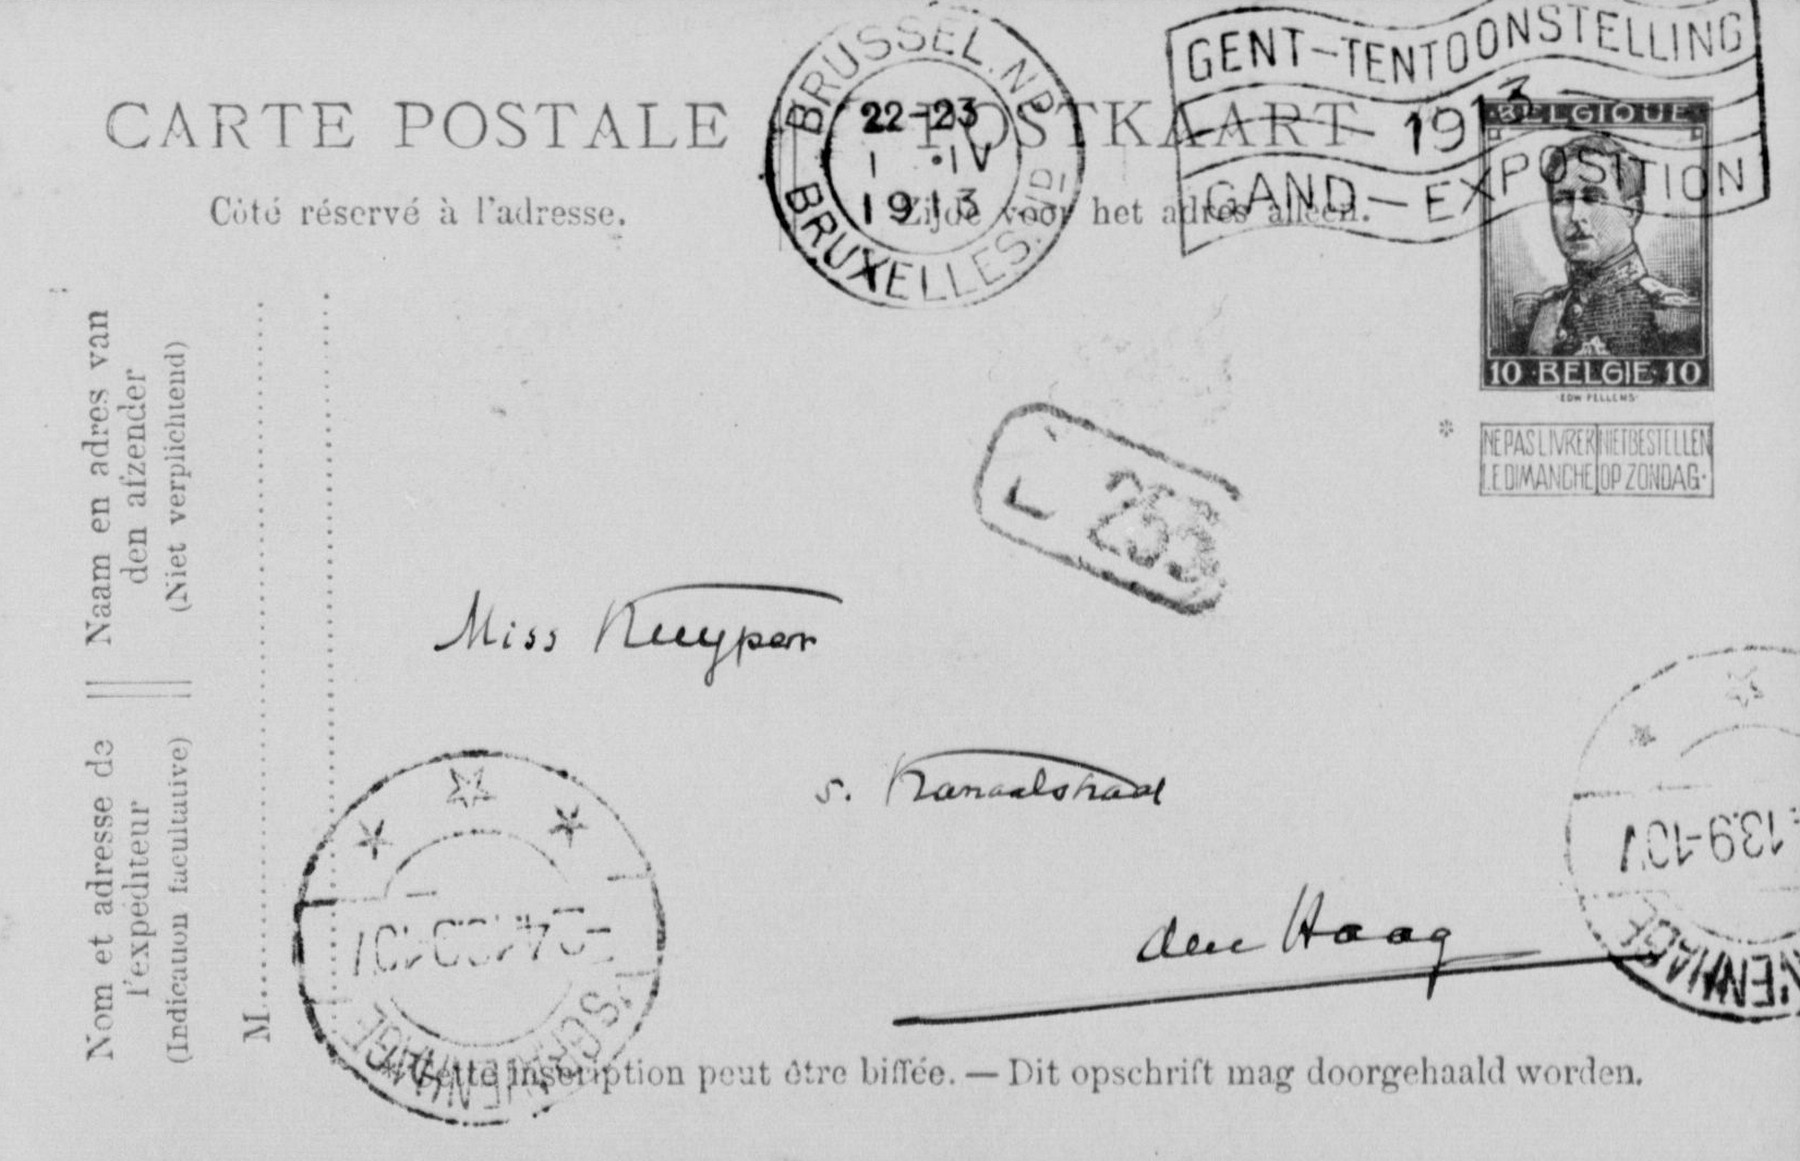 CARTE POSTALE
POSTKAART
Côté réservé à l'adresse.
Zijde voor het adres alleen.
BRUSSEL.
22-23
1 ·IV
1913
BRUXELLES.
GENT-TENTOONSTELLING
1913
GAND-EXPOSITION
BELGIQUE
10 BELGIE 10
EDW PELLENS
*
NE PAS LIVRER LE DIMANCHE
NIET BESTELLEN OP ZONDAG.
Naam en adres van
den afzender
(Niet verplichtend)
Nom et adresse de
l'expéditeur
(Indication facultative)
M.
L 253
Miss Kuyper
5. Kanaalstraat
den Haag
'S GRAVENHAGE
13.9-10V
* Cette inscription peut être biffée. — Dit opschrift mag doorgehaald worden.